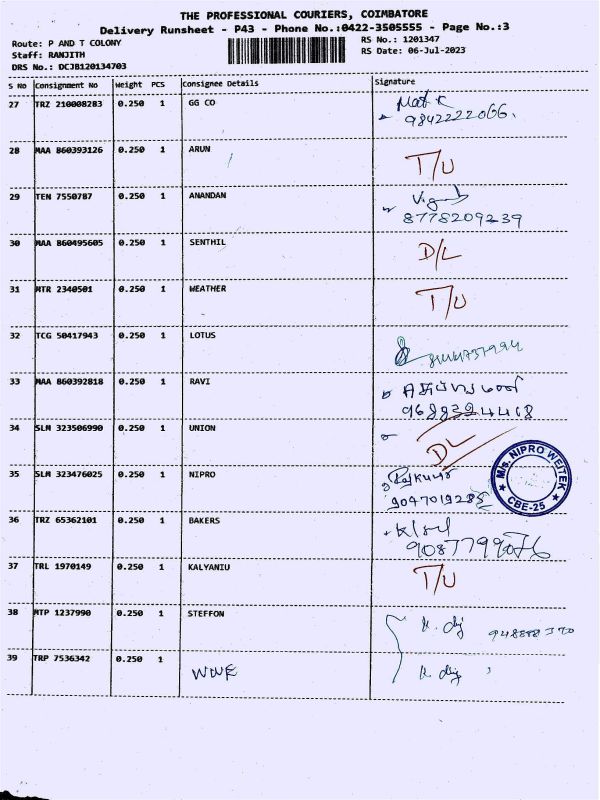 THE PROFESSIONAL COURIERS, COIMBATORE
Delivery Runsheet - P43 - Phone No.:0422-3505555 - Page No.:3
Route: P AND T COLONY RS No.: 1201347
Staff: RANJITH RS Date: 06-Jul-2023
DRS No.: DCJB120134703
S No Consignment No Weight PCS Consignee Details Signature
27 TRZ 210008283 0.250 1 GG CO
9842222066.
28 MAA 860393126 0.250 1 ARUN T/U
29 TEN 7550787 0.250 1 ANANDAN
8778209239
30 MAA 860495605 0.250 1 SENTHIL D/L
31 MTR 2340501 0.250 1 WEATHER T/U
32 TCG 50417943 0.250 1 LOTUS
33 MAA 860392818 0.250 1 RAVI
34 SLM 323506990 0.250 1 UNION DL
35 SLM 323476025 0.250 1 NIPRO
M/s. NIPRO WEITEK
CBE-25
36 TRZ 65362101 0.250 1 BAKERS
37 TRL 1970149 0.250 1 KALYANIU T/U
38 MTP 1237990 0.250 1 STEFFON
39 TRP 7536342 0.250 1 WWE